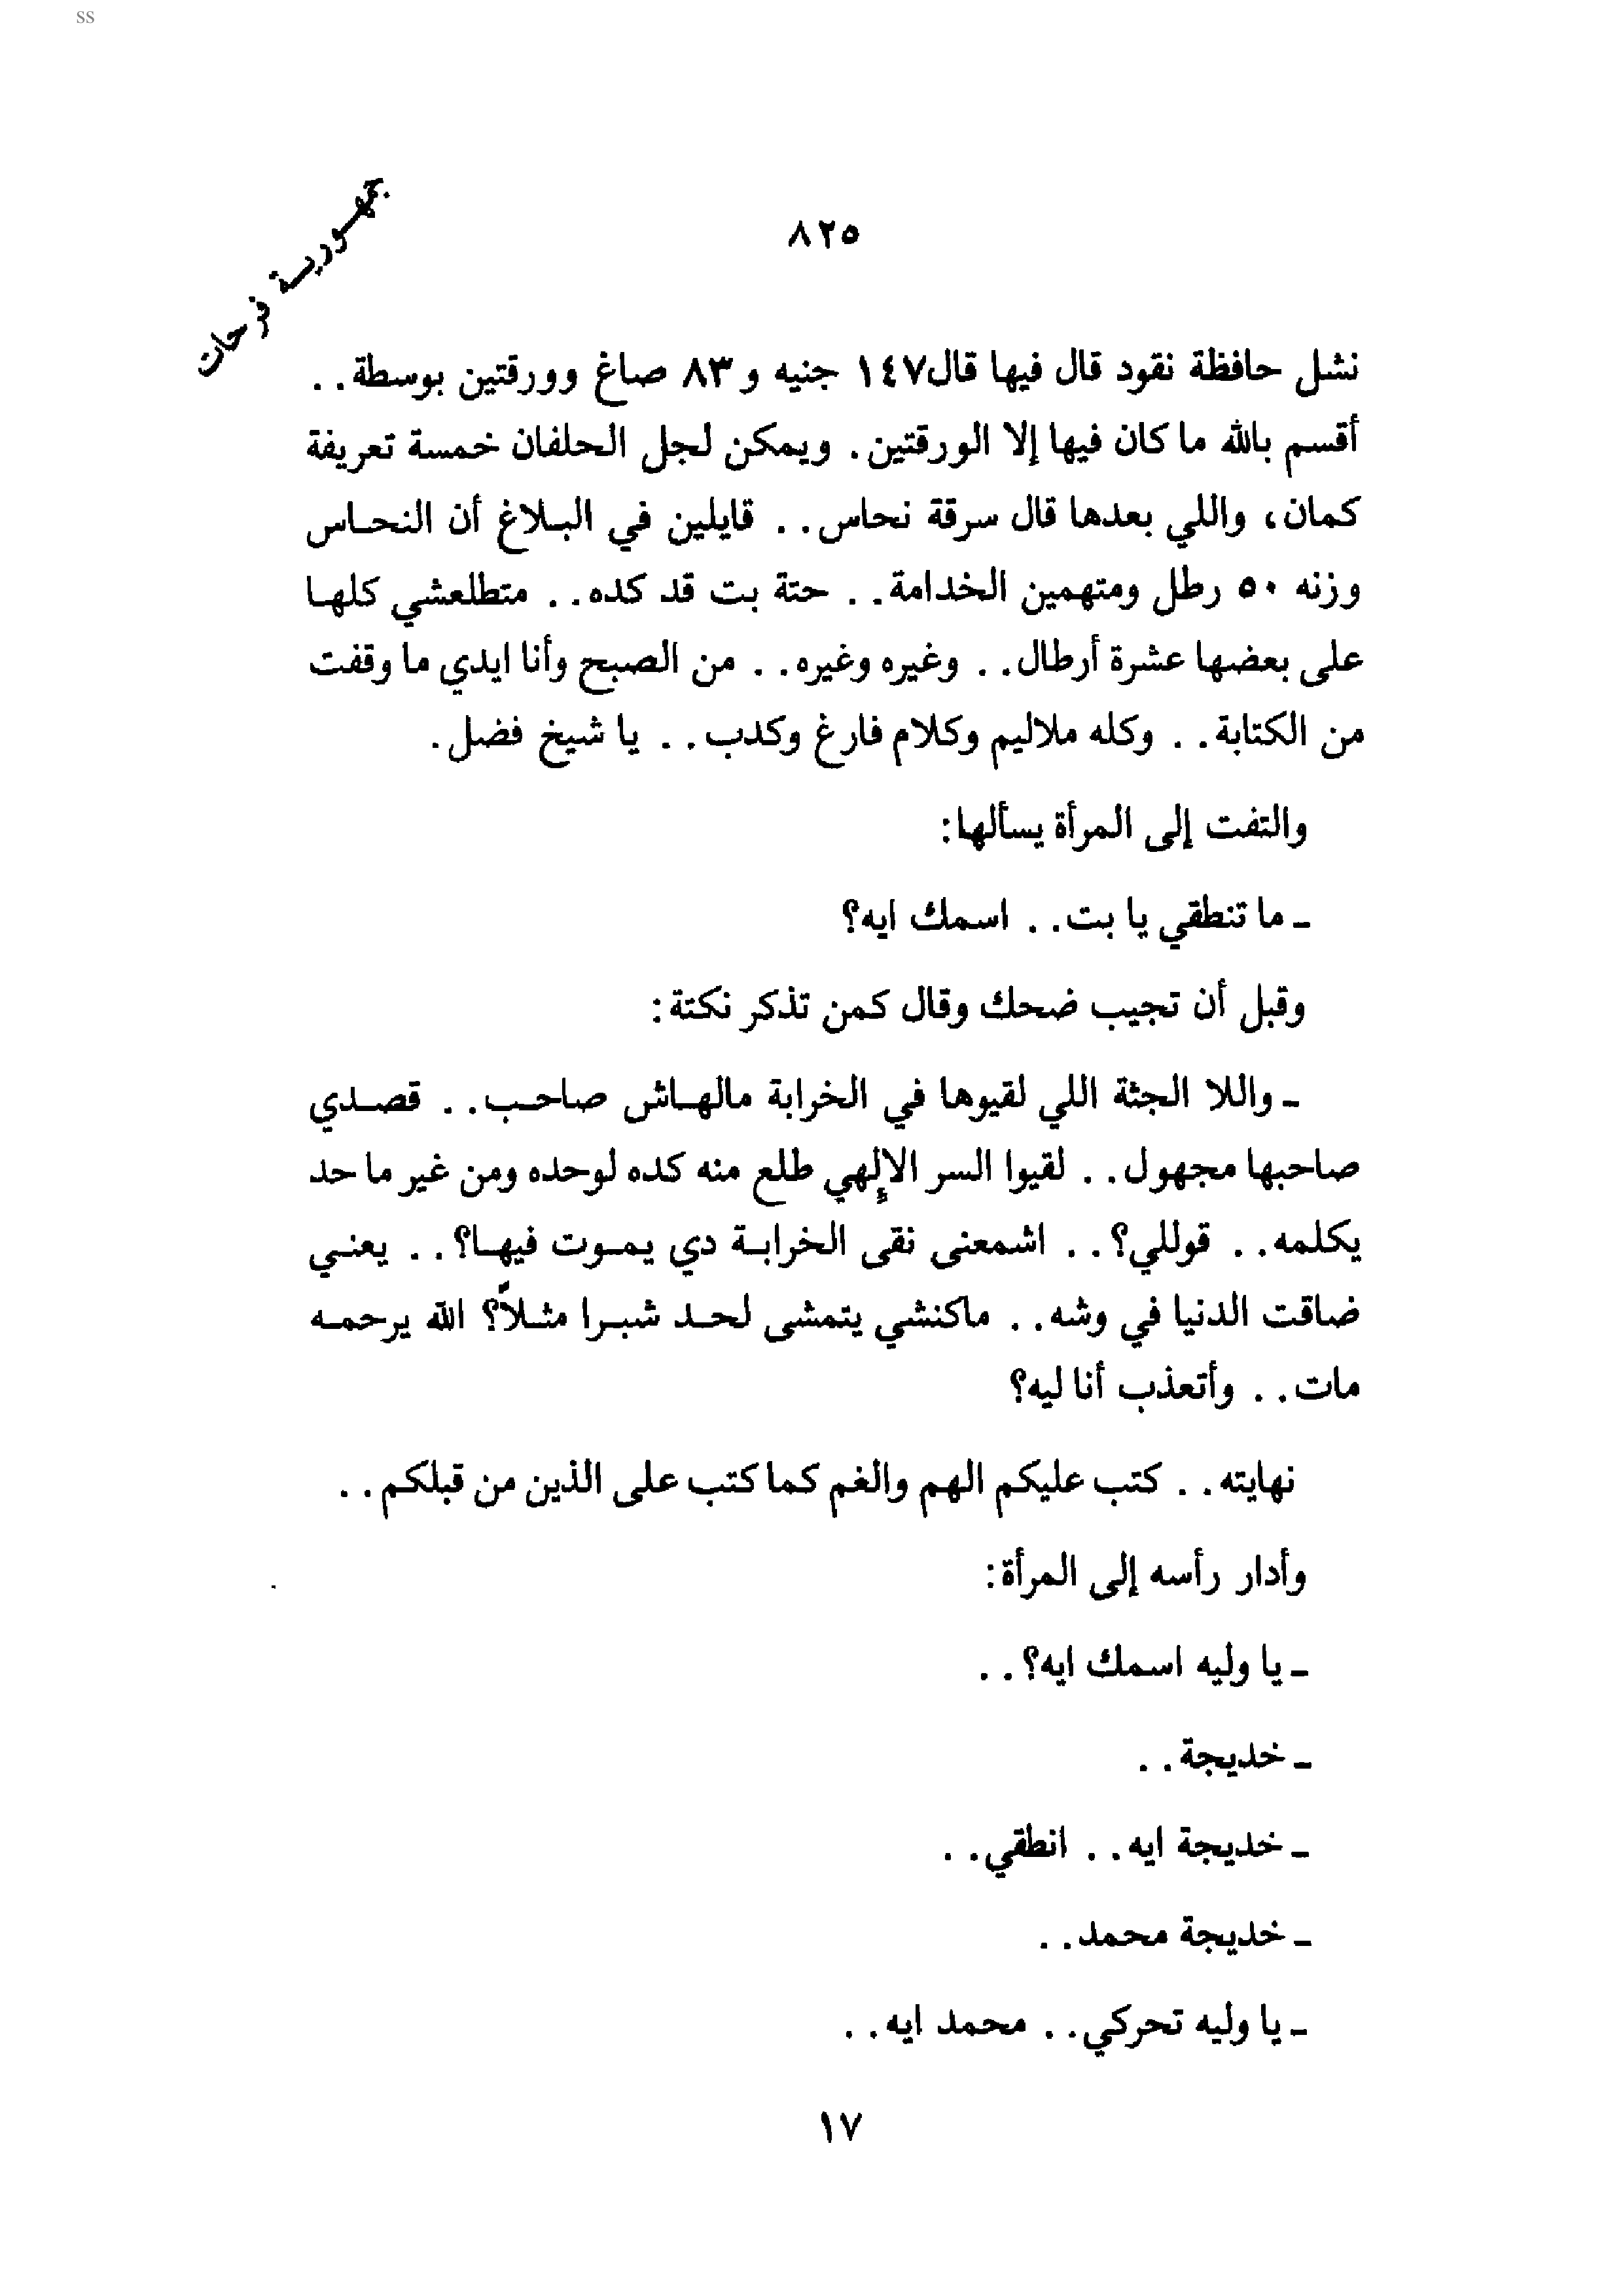 ss
جمهورية فرحات
٨٢٥
نشل حافظة نقود قال فيها قال١٤٧ جنيه و ٨٣ صاغ وورقتين بوسطة . .
أقسم بالله ما كان فيها إلا الورقتين . ويمكن لجل الحلفان خمسة تعريفة
كمان ، واللي بعدها قال سرقة نحاس . . قايلين في البلاغ أن النحاس
وزنه ٥٠ رطل ومتهمين الخدامة . . حتة بت قد كده . . متطلعشي كلها
على بعضها عشرة أرطال . . وغيره وغيره . . من الصبح وأنا ايدي ما وقفت
من الكتابة . . وكله ملاليم وكلام فارغ وكدب . . يا شيخ فضل .
والتفت إلى المرأة يسألها :
ـ ما تنطقي يا بت . . اسمك ايه؟
وقبل أن تجيب ضحك وقال كمن تذكر نكتة :
ـ واللا الجثة اللي لقيوها في الخرابة مالهاش صاحب . . قصدي
صاحبها مجهول . . لقيوا السر الإلهي طلع منه كده لوحده ومن غير ما حد
يكلمه . . قوللي؟ . . اشمعنى نقى الخرابة دي يموت فيها؟ . . يعني
ضاقت الدنيا في وشه . . ماكنشي يتمشى لحد شبرا مثلاً؟ الله يرحمه
مات . . وأتعذب أنا ليه؟
نهايته . . كتب عليكم الهم والغم كما كتب على الذين من قبلكم . .
وأدار رأسه إلى المرأة :
ـ يا وليه اسمك ايه؟ . .
ـ خديجة . .
ـ خديجة ايه . . انطقي . .
ـ خديجة محمد . .
ـ يا وليه تحركي . . محمد ايه . .
١٧